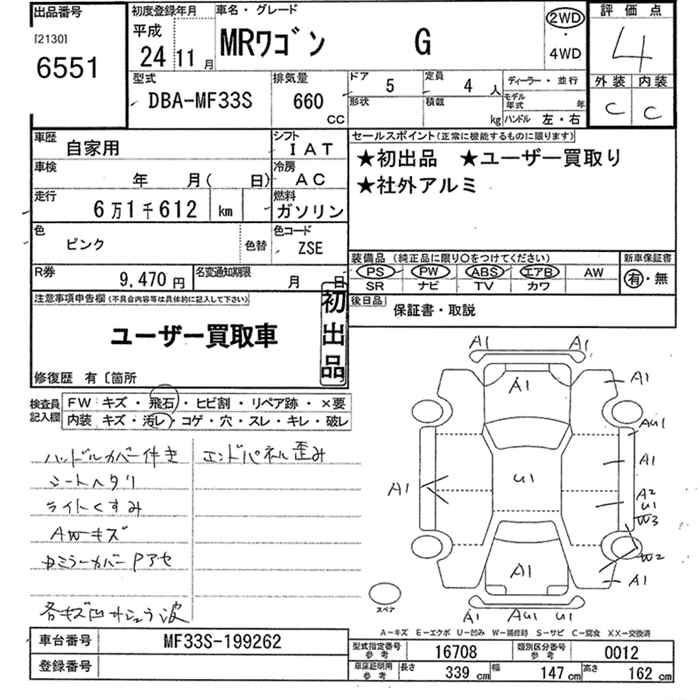 出品番号
[2130]
6551
初度登録年月
平成
24 11月
車名・グレード
MRワゴン G
2WD
・
4WD
評価点
4
外装 内装
C C
型式
DBA-MF33S
排気量
660
CC
ドア 5
定員 4人
ディーラー・並行
形状
積載 kg
モデル年式 年
ハンドル 左・右
車歴 自家用
シフト IAT
車検 年 月( 日)
冷房 AC
走行 6万1千612 km
燃料 ガソリン
色 ピンク 色替
色コード ZSE
R券 9,470円
名変通知期限 月 日
セールスポイント(正常に機能するものに限ります)
★初出品 ★ユーザー買取り
★社外アルミ
装備品(純正品に限り○をつけてください)
PS PW ABS エアB AW
SR ナビ TV カワ
新車保証書
有・無
後日品
保証書・取説
注意事項申告欄(不具合内容等は具体的に記入して下さい)
ユーザー買取車
初出品
修復歴 有〔箇所
検査員記入欄
FW キズ・飛石・ヒビ割・リペア跡・×要
内装 キズ・汚レ・コゲ・穴・スレ・キレ・破レ
ハンドルカバー付き エンドパネル歪み
シートヘタリ
ライトくすみ
AWキズ
ミラーカバーPアセ
各キズ凹
波
A1 A1
A1 A1
AU1
A1 U1 A1
A2
U1
W3
W2
A1 A1
A1 AU1 U1
スペア
A-キズ E-エクボ U-凹み W-補修跡 S-サビ C-腐食 XX-交換済
車台番号 MF33S-199262
登録番号
型式指定番号参考 16708
類別区分番号参考 0012
車庫証明用参考 長さ 339cm 幅 147cm 高さ 162cm